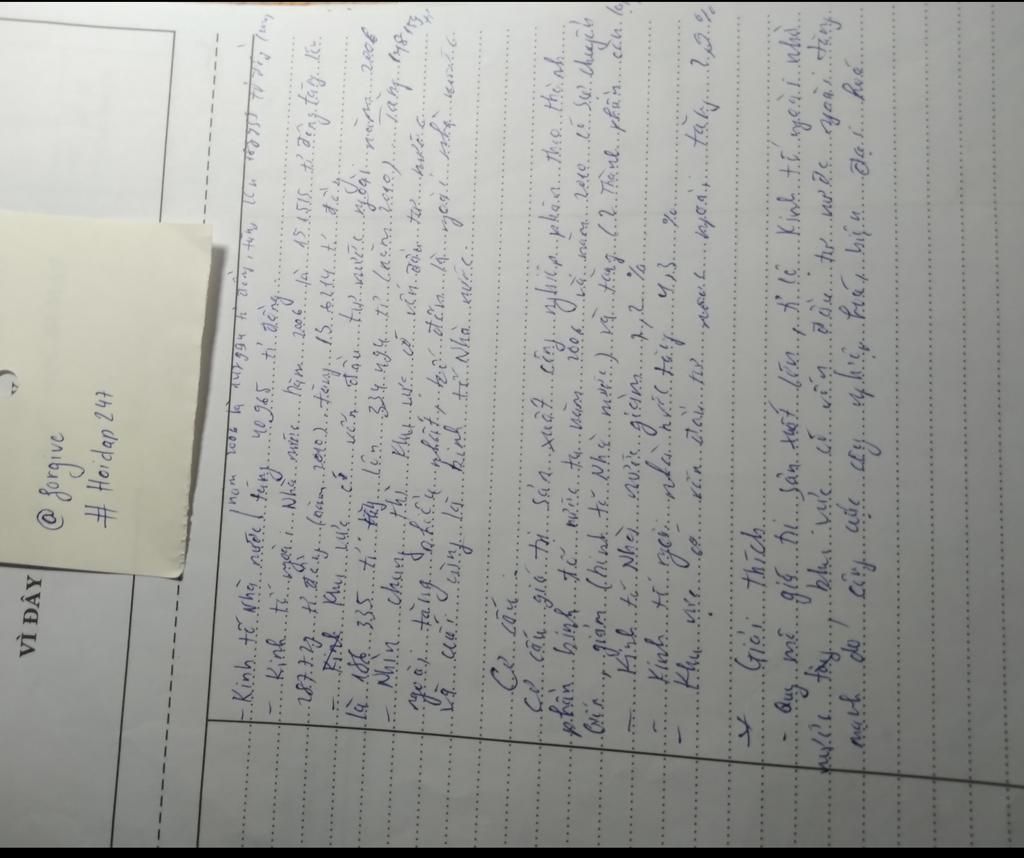 VÌ ĐÂY
@ forgive
# Hoidap 247
- Kinh tế Nhà nước năm 2006 là 147 994 tỉ đồng, tăng lên
tăng 40 965 tỉ đồng
- Kinh tế ngoài Nhà nước năm 2006 là 151515 tỉ đồng tăng lên
287729 tỉ đồng (năm 2010) tăng 136214 tỉ đồng
- Khu vực có vốn đầu tư nước ngoài năm 2006
là 186 335 tỉ lên 334 494 tỉ (năm 2010) tăng
- Nhìn chung thì khu vực có vốn đầu tư nước
ngoài tăng nhiều nhất, kế đến là ngoài nhà nước
và cuối cùng là kinh tế Nhà nước
Cơ cấu
Cơ cấu giá trị sản xuất công nghiệp phân theo thành
phần kinh tế nước ta năm 2006 và năm 2010 có sự chuyển
biến, giảm (kinh tế Nhà nước) và tăng (2 Thành phần còn lại)
- Kinh tế Nhà nước giảm 7,2 %
- Kinh tế ngoài nhà nước tăng 4,3 %
- Khu vực có vốn đầu tư nước ngoài tăng 2,9 %
* Giải thích
- Quy mô giá trị sản xuất lên, tỉ lệ Kinh tế ngoài nhà
nước tăng, khu vực có vốn đầu tư nước ngoài tăng
mạnh do công cuộc công nghiệp, hiện đại hoá